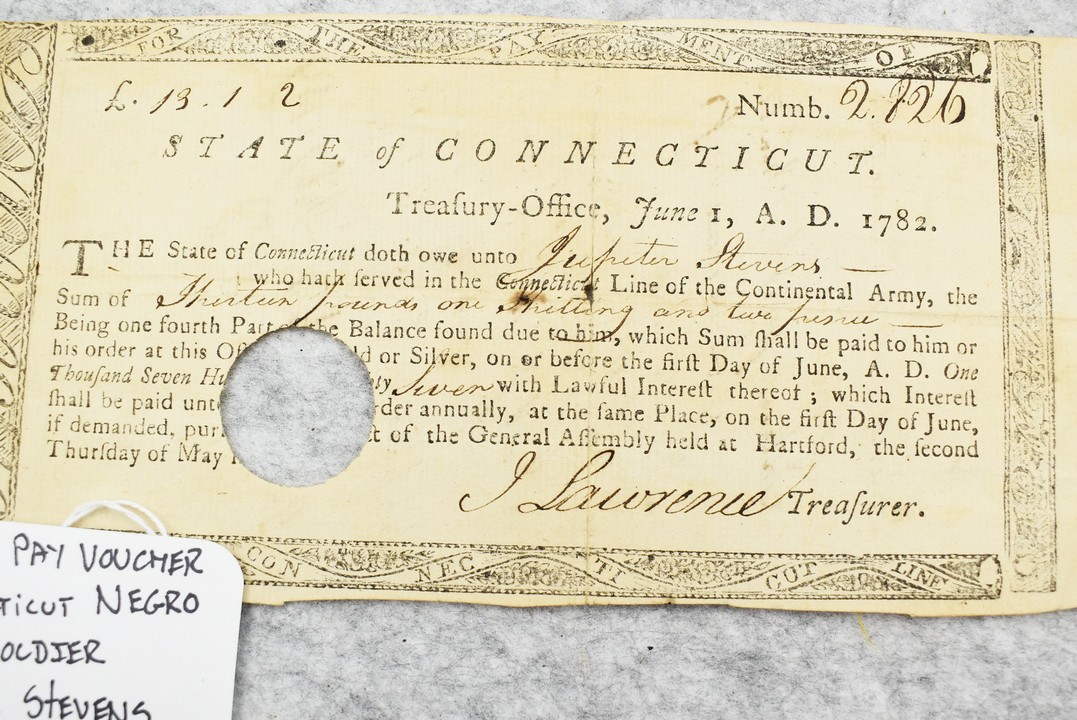 FOR THE PAY MENT OF
£. 13 . 1 2
Numb. 2.826
STATE of CONNECTICUT.
Treaſury-Office, June 1, A. D. 1782.
THE State of Connecticut doth owe unto Jupiter Stevens —
who hath ſerved in the Connecticut Line of the Continental Army, the
Sum of Thirteen pounds one ſhilling and two pence —
Being one fourth Part the Balance found due to him, which Sum ſhall be paid to him or
his order at this ld or Silver, on or before the firſt Day of June, A. D. One
Thouſand Seven ty Seven with Lawful Intereſt thereof ; which Intereſt
ſhall be paid rder annually, at the ſame Place, on the firſt Day of June,
if demanded, of the General Aſſembly held at Hartford, the ſecond
Thurſday of May
J Lawrence Treaſurer.
CON NEC TI CUT LINE
PAY VOUCHER
TICUT NEGRO
OLDIER
STEVENS